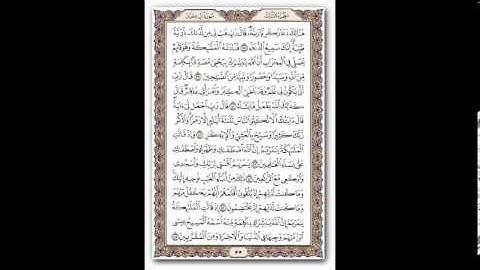 الجزء الثالث
سورة آل عمران
هنالك دعا زكريا ربه قال رب هب لي من لدنك ذرية
طيبة إنك سميع الدعاء ٣٨ فنادته الملائكة وهو قائم
يصلي في المحراب أن الله يبشرك بيحيى مصدقا بكلمة
من الله وسيدا وحصورا ونبيا من الصالحين ٣٩ قال رب
أنى يكون لي غلام وقد بلغني الكبر وامرأتي عاقر قال
كذلك الله يفعل ما يشاء ٤٠ قال رب اجعل لي آية
قال آيتك ألا تكلم الناس ثلاثة أيام إلا رمزا واذكر
ربك كثيرا وسبح بالعشي والإبكار ٤١ وإذ قالت
الملائكة يا مريم إن الله اصطفاك وطهرك واصطفاك
على نساء العالمين ٤٢ يا مريم اقنتي لربك واسجدي
واركعي مع الراكعين ٤٣ ذلك من أنباء الغيب نوحيه إليك
وما كنت لديهم إذ يلقون أقلامهم أيهم يكفل مريم
وما كنت لديهم إذ يختصمون ٤٤ إذ قالت الملائكة
يا مريم إن الله يبشرك بكلمة منه اسمه المسيح عيسى
ابن مريم وجيها في الدنيا والآخرة ومن المقربين ٤٥
٥٥